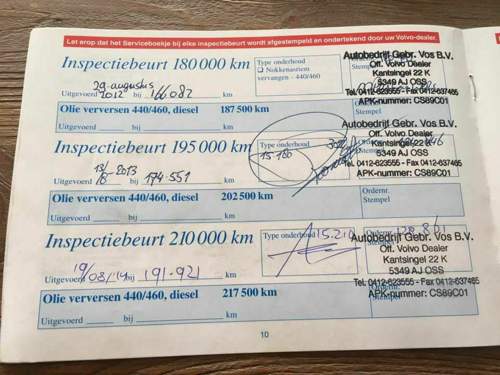 Let erop dat het Serviceboekje bij elke inspectiebeurt wordt afgestempeld en ondertekend door uw Volvo-dealer.
Inspectiebeurt 180 000 km
Type onderhoud
Nokkenasriem
vervangen - 440/460
Stempel
Autobedrijf Gebr. Vos B.V.
Off. Volvo Dealer
Kantsingel 22 K
5349 AJ OSS
Tel. 0412-623555 - Fax 0412-637465
APK-nummer: CS89C01
Uitgevoerd 29 augustus 2012 bij 166 082 km
Olie verversen 440/460, diesel 187 500 km
Stempel
Uitgevoerd bij km
Inspectiebeurt 195 000 km
Type onderhoud
15.160
Autobedrijf Gebr. Vos B.V.
Off. Volvo Dealer
Kantsingel 22 K
5349 AJ OSS
Tel. 0412-623555 - Fax 0412-637465
APK-nummer: CS89C01
Uitgevoerd 2013 bij 174.551 km
Olie verversen 440/460, diesel 202 500 km
Ordernr.
Stempel
Uitgevoerd bij km
Inspectiebeurt 210 000 km
Type onderhoud
15.210
Ordernr.
Autobedrijf Gebr. Vos B.V.
Off. Volvo Dealer
Kantsingel 22 K
5349 AJ OSS
Tel. 0412-623555 - Fax 0412-637465
APK-nummer: CS89C01
Uitgevoerd 19/08/14 bij 191.921 km
Olie verversen 440/460, diesel 217 500 km
Ordernr.
Stempel
Uitgevoerd bij km
10